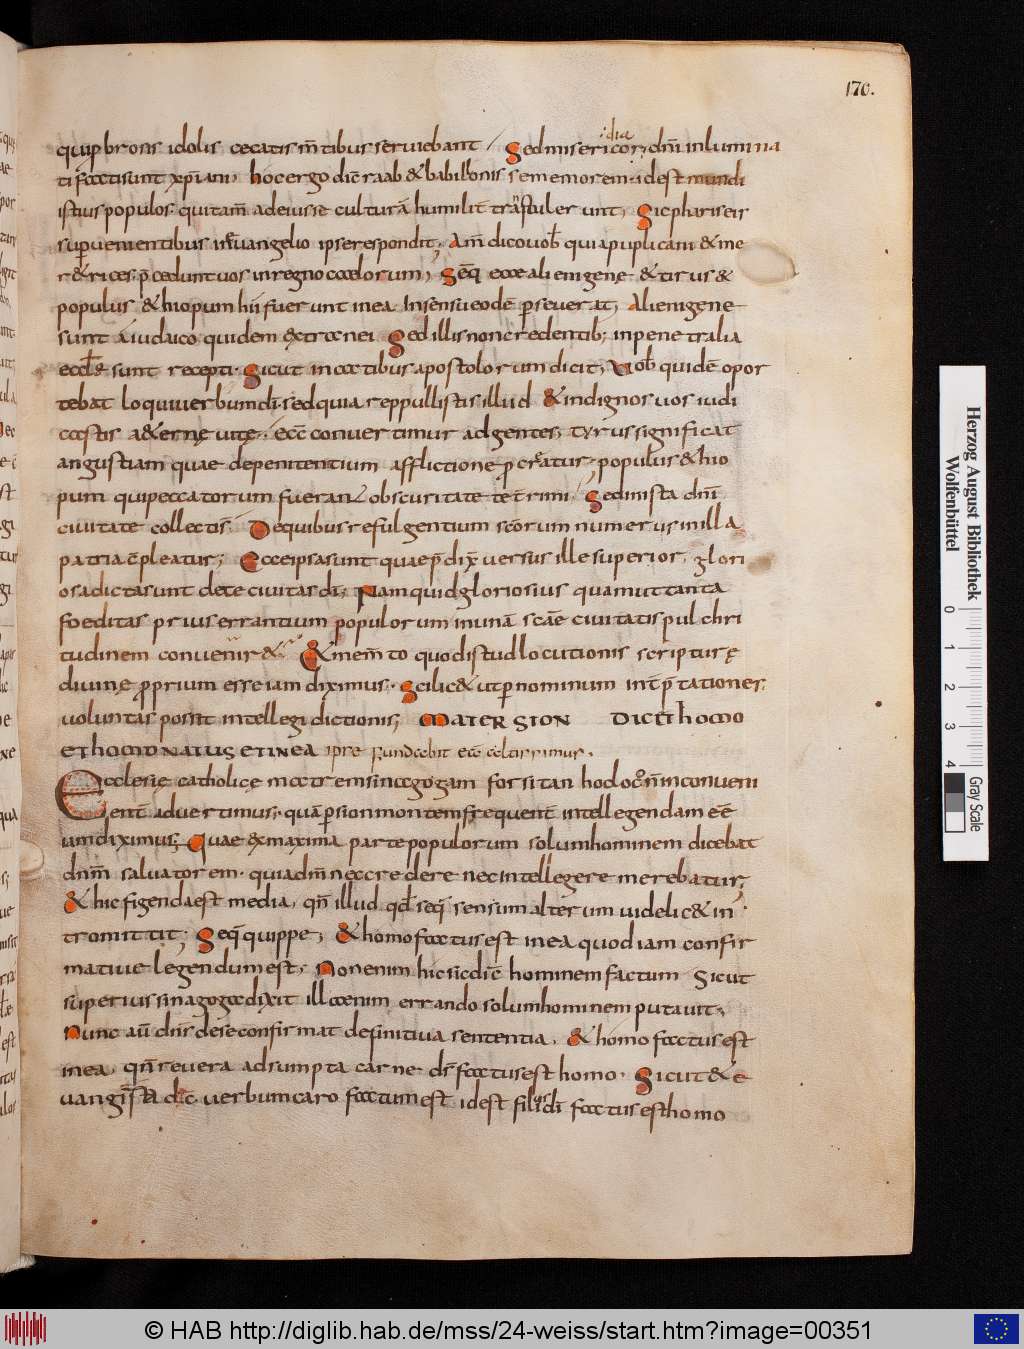 170.
qui pbrosis idolis cecatis m̄tibus seruiebant / Sed misericordia dn̄i inlumina
ti facti sunt xp̄iani, hoc ergo dic̄ raab & babilonis se memorem. idest mundi
istius populos qui tam̄ ad eius se culturā humilit̄ trās tulerunt, Sic phariseis
superuenientibus in euangelio ipse respondit, Am̄ dico uob̄ quia puplicani & me
r&rices p̄cedunt uos in regno caelorum, Seq̄ ecce alienigenę & tirus &
populus & hiopum hii fuerunt in ea. In sensu eodē perseuerat, Alienigenę
sunt a iudaico quidem extranei Sed illis non credentib; in penetralia
eccl̄ę sunt recepti. Sicut in actibus apostolorum dicit, Uob̄ quidē opor
tebat loqui uerbum dī. sed quia reppullistis illud & indignos uos iudi
castis a&ernę uitę, ecc̄ conuertimur ad gentes; tyrus significat
angustiam quae de penitentium afflictione p̄creatur. populus & hio
pum qui peccatorum fuerant obscuritate tet̄rimi, Sed in ista dn̄i
ciuitate collectis̄. De quibus refulgentium sc̄orum numerus in illa
patria c̄pleatur; Ecce ipsa sunt quae p̄dix̄ uersus ille superior, glori
osa dicta sunt de te ciuitas dī; Nam quid gloriosius quam ut tanta
foeditas prius errantium populorum in unā sc̄āe ciuitatis pulchri
tudinem conuenir& & mem̄to quod istud locutionis scripturę
diuinę p̄prium esse iam diximus. Scilic& ut per nominum int̄p̄tationes
uoluntas possit intellegi dictionis; MATER SION DICET HOMO
ET HOMO NATUS EST IN EA ipse fundauit eā altissimus.
Ecclesię catholicę matrem sinagogam forsitan hod oc̄ n̄ inconueni
ent̄ aduertimus, quā per sion montem frequent̄ intellegendam eē
iam diximus; Quae ex maxima parte populorum solum hominem dicebat
dn̄m saluatorem. qui a dn̄m nec credere nec intellegere merebatur,
& hic figenda est media, qn̄ illud qd̄ seq̄ sensum alterum uidelic& in
tromittit; Seq̄ quippe, & homo factus est in ea quod iam confir
matiue legendum est; Non enim hic sic dic̄ hominem factum Sicut
superius sinagoga dixit illa enim errando solum hominem putauit,
Nunc aū dn̄s de se confirmat definitiua sententia, & homo factus est
in ea, qn̄ reuera adsumpta carne dī factus est homo. Sicut & e
uangista dic̄. uerbum caro factum est idest filius dī factus est homo
Herzog August Bibliothek
Wolfenbüttel
0 1 2 3 4
Gray Scale
© HAB http://diglib.hab.de/mss/24-weiss/start.htm?image=00351